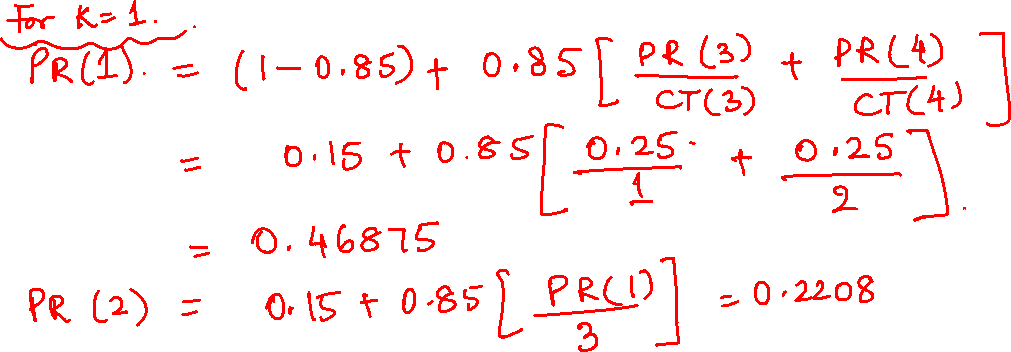 For K=1.
PR(1). = (1-0.85) + 0.85 [ PR(3)/CT(3) + PR(4)/CT(4) ]
= 0.15 + 0.85 [ 0.25/1 + 0.25/2 ].
= 0.46875
PR (2) = 0.15 + 0.85 [ PR(1)/3 ] = 0.2208